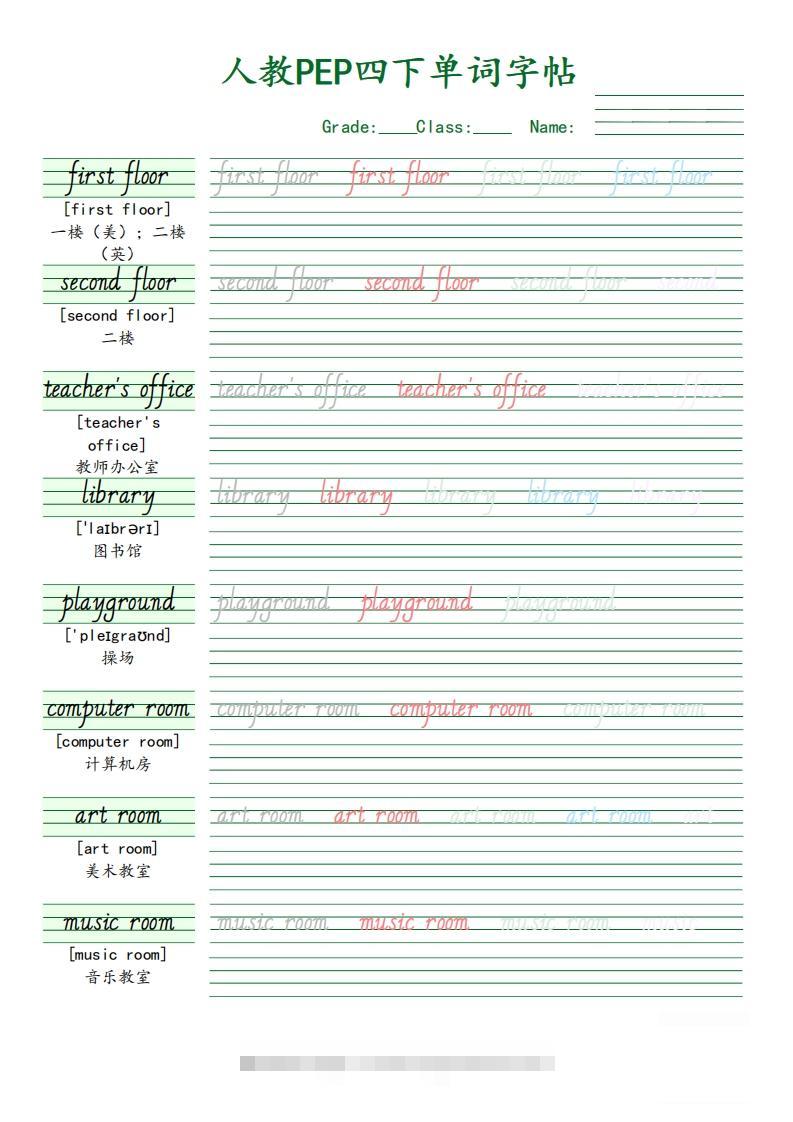 人教PEP四下单词字帖
Grade:____Class:____ Name:
first floor first floor first floor first floor first floor
[first floor]
一楼（美）；二楼
（英）
second floor second floor second floor second floor second
[second floor]
二楼
teacher's office teacher's office teacher's office teacher's office
[teacher's
office]
教师办公室
library library library library library library
['laɪbrərɪ]
图书馆
playground playground playground playground
['pleɪgraʊnd]
操场
computer room computer room computer room computer room
[computer room]
计算机房
art room art room art room art room art room art
[art room]
美术教室
music room music room music room music room music
[music room]
音乐教室